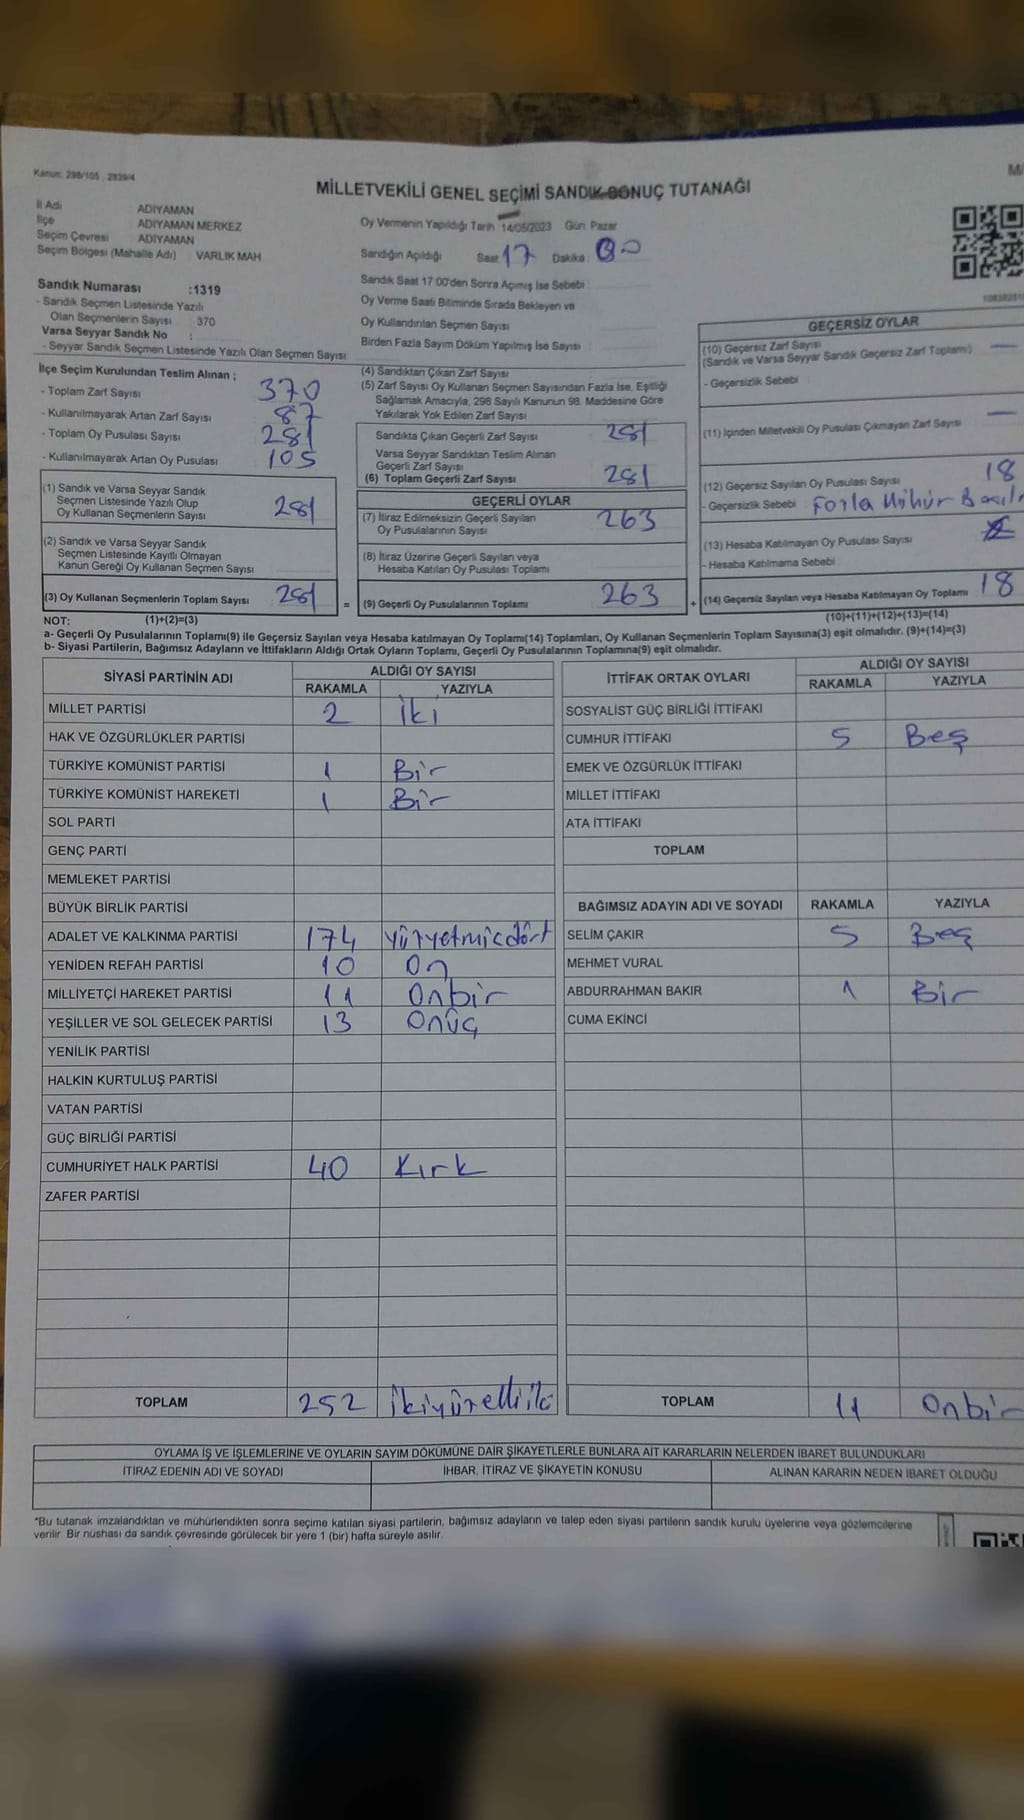 Kanun: 298/105 , 2839/4
MİLLETVEKİLİ GENEL SEÇİMİ SANDIK SONUÇ TUTANAĞI
İl Adı ADIYAMAN
İlçe ADIYAMAN MERKEZ
Seçim Çevresi ADIYAMAN
Seçim Bölgesi (Mahalle Adı) VARLIK MAH
Oy Vermenin Yapıldığı Tarih :14/05/2023 Gün: Pazar
Sandığın Açıldığı Saat 17 Dakika 00
Sandık Saat 17:00'den Sonra Açımış İse Sebebi
Oy Verme Saati Bitiminde Sırada Bekleyen ve
Oy Kullandırılan Seçmen Sayısı
Birden Fazla Sayım Döküm Yapılmış İse Sayısı
Sandık Numarası :1319
- Sandık Seçmen Listesinde Yazılı
Olan Seçmenlerin Sayısı 370
Varsa Seyyar Sandık No :
- Seyyar Sandık Seçmen Listesinde Yazılı Olan Seçmen Sayısı
İlçe Seçim Kurulundan Teslim Alınan ;
- Toplam Zarf Sayısı 370
- Kullanılmayarak Artan Zarf Sayısı 87
- Toplam Oy Pusulası Sayısı 281
- Kullanılmayarak Artan Oy Pusulası 105
(1) Sandık ve Varsa Seyyar Sandık
Seçmen Listesinde Yazılı Olup
Oy Kullanan Seçmenlerin Sayısı 281
(2) Sandık ve Varsa Seyyar Sandık
Seçmen Listesinde Kayıtlı Olmayan
Kanun Gereği Oy Kullanan Seçmen Sayısı
(3) Oy Kullanan Seçmenlerin Toplam Sayısı 281 =
(4) Sandıktan Çıkan Zarf Sayısı
(5) Zarf Sayısı Oy Kullanan Seçmen Sayısından Fazla İse, Eşitliği
Sağlamak Amacıyla, 298 Sayılı Kanunun 98. Maddesine Göre
Yakılarak Yok Edilen Zarf Sayısı
Sandıkta Çıkan Geçerli Zarf Sayısı 281
Varsa Seyyar Sandıktan Teslim Alınan
Geçerli Zarf Sayısı
(6) Toplam Geçerli Zarf Sayısı 281
GEÇERLİ OYLAR
(7) İtiraz Edilmeksizin Geçerli Sayılan
Oy Pusulalarının Sayısı 263
(8) İtiraz Üzerine Geçerli Sayılan veya
Hesaba Katılan Oy Pusulası Toplamı
(9) Geçerli Oy Pusulalarının Toplamı 263 +
GEÇERSİZ OYLAR
(10) Geçersiz Zarf Sayısı —
(Sandık ve Varsa Seyyar Sandık Geçersiz Zarf Toplamı)
- Geçersizlik Sebebi
(11) İçinden Milletvekili Oy Pusulası Çıkmayan Zarf Sayısı —
(12) Geçersiz Sayılan Oy Pusulası Sayısı 18
- Geçersizlik Sebebi Fazla Mühür
(13) Hesaba Katılmayan Oy Pusulası Sayısı
- Hesaba Katılmama Sebebi
(14) Geçersiz Sayılan veya Hesaba Katılmayan Oy Toplamı 18
NOT: (1)+(2)=(3) (10)+(11)+(12)+(13)=(14)
a- Geçerli Oy Pusulalarının Toplamı(9) ile Geçersiz Sayılan veya Hesaba katılmayan Oy Toplamı(14) Toplamları, Oy Kullanan Seçmenlerin Toplam Sayısına(3) eşit olmalıdır. (9)+(14)=(3)
b- Siyasi Partilerin, Bağımsız Adayların ve İttifakların Aldığı Ortak Oyların Toplamı, Geçerli Oy Pusulalarının Toplamına(9) eşit olmalıdır.
SİYASİ PARTİNİN ADI ALDIĞI OY SAYISI
RAKAMLA YAZIYLA
MİLLET PARTİSİ 2 İki
HAK VE ÖZGÜRLÜKLER PARTİSİ
TÜRKİYE KOMÜNİST PARTİSİ 1 Bir
TÜRKİYE KOMÜNİST HAREKETİ 1 Bir
SOL PARTİ
GENÇ PARTİ
MEMLEKET PARTİSİ
BÜYÜK BİRLİK PARTİSİ
ADALET VE KALKINMA PARTİSİ 174 yüzyetmisdört
YENİDEN REFAH PARTİSİ 10 On
MİLLİYETÇİ HAREKET PARTİSİ 11 Onbir
YEŞİLLER VE SOL GELECEK PARTİSİ 13 Onüç
YENİLİK PARTİSİ
HALKIN KURTULUŞ PARTİSİ
VATAN PARTİSİ
GÜÇ BİRLİĞİ PARTİSİ
CUMHURİYET HALK PARTİSİ 40 Kırk
ZAFER PARTİSİ
TOPLAM 252
İTTİFAK ORTAK OYLARI ALDIĞI OY SAYISI
RAKAMLA YAZIYLA
SOSYALİST GÜÇ BİRLİĞİ İTTİFAKI
CUMHUR İTTİFAKI 5 Beş
EMEK VE ÖZGÜRLÜK İTTİFAKI
MİLLET İTTİFAKI
ATA İTTİFAKI
TOPLAM
BAĞIMSIZ ADAYIN ADI VE SOYADI RAKAMLA YAZIYLA
SELİM ÇAKIR 5 Beş
MEHMET VURAL
ABDURRAHMAN BAKIR 1 Bir
CUMA EKİNCİ
TOPLAM 11 Onbir
OYLAMA İŞ VE İŞLEMLERİNE VE OYLARIN SAYIM DÖKÜMÜNE DAİR ŞİKAYETLERLE BUNLARA AİT KARARLARIN NELERDEN İBARET BULUNDUKLARI
İTİRAZ EDENİN ADI VE SOYADI İHBAR, İTİRAZ VE ŞİKAYETİN KONUSU ALINAN KARARIN NEDEN İBARET OLDUĞU
*Bu tutanak imzalandıktan ve mühürlendikten sonra seçime katılan siyasi partilerin, bağımsız adayların ve talep eden siyasi partilerin sandık kurulu üyelerine veya gözlemcilerine
verilir. Bir nüshası da sandık çevresinde görülecek bir yere 1 (bir) hafta süreyle asılır.